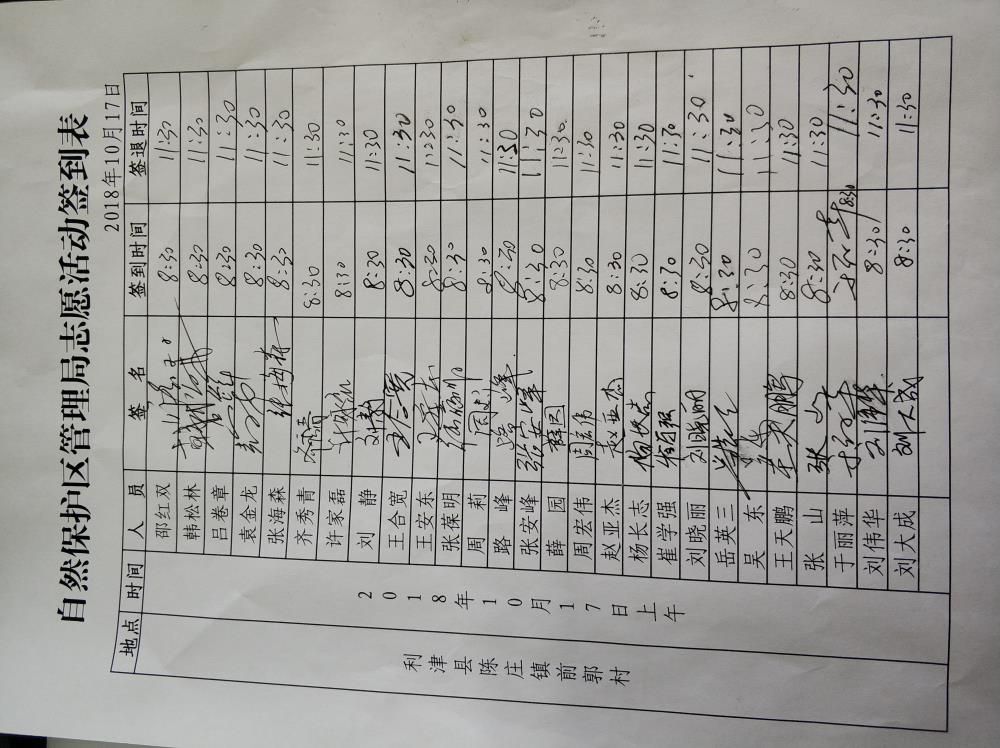 自然保护区管理局志愿活动签到表
2018年10月17日
地点 时间 人员 签名 签到时间 签退时间
利津县陈庄镇前郭村
2018年10月17日上午
邵红双 8:30 11:30
韩松林 8:30 11:30
吕卷章 8:30 11:30
袁金龙 8:30 11:30
张海森 张海森 8:30 11:30
齐秀青 8:30 11:30
许家磊 8:30 11:30
刘静 刘静 8:30 11:30
王合宽 8:30 11:30
王安东 8:30 11:30
张葆明 8:30 11:30
周莉 周莉 8:30 11:30
路峰 路峰 8:30 11:30
张安峰 张安峰 8:30 11:30
薛园 薛园 8:30 11:30
周宏伟 周宏伟 8:30 11:30
赵亚杰 赵亚杰 8:30 11:30
杨长志 8:30 11:30
崔学强 8:30 11:30
刘晓丽 8:30 11:30
岳英三 8:30 11:30
吴东 8:30 11:30
王天鹏 王天鹏 8:30 11:30
张山 张山 8:30 11:30
于丽萍 8:30 11:30
刘伟华 刘伟华 8:30 11:30
刘大成 刘大成 8:30 11:30